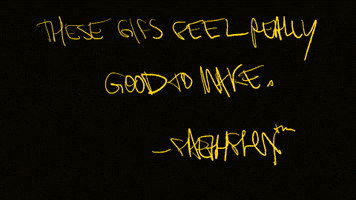 THESE GIFS FEEL REALLY
GOOD TO MAKE.